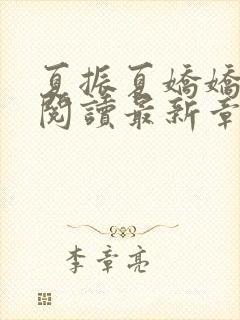 夏振夏嬌嬌
閱讀最新章
李章亮